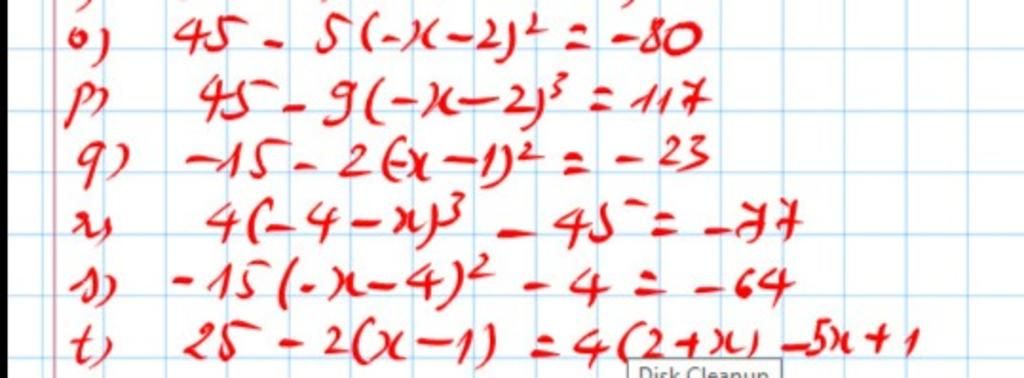 o) 45 - 5(-x-2)² = -80
p) 45 - 9(-x-2)³ = 117
q) -15 - 2(-x-1)² = -23
r) 4(-4-x)³ - 45 = -77
s) -15(-x-4)² - 4 = -64
t) 25 - 2(x-1) = 4(2+x) -5x+1
Disk Cleanup